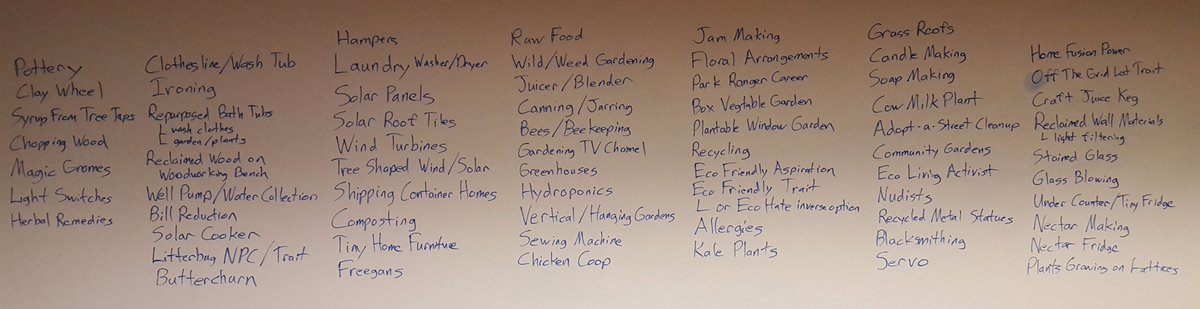 Pottery
Clay Wheel
Syrup From Tree Taps
Chopping Wood
Magic Gnomes
Light Switches
Herbal Remedies
Clothesline/Wash Tub
Ironing
Repurposed Bath Tubs
L wash clothes
garden/plants
Reclaimed Wood on
Woodworking Bench
Well Pump/Water Collection
Bill Reduction
Solar Cooker
Litterbug NPC/Trait
Butterchurn
Hampers
Laundry Washer/Dryer
Solar Panels
Solar Roof Tiles
Wind Turbines
Tree Shaped Wind/Solar
Shipping Container Homes
Composting
Tiny Home Furniture
Freegans
Raw Food
Wild/Weed Gardening
Juicer/Blender
Canning/Jarring
Bees/Beekeeping
Gardening TV Channel
Greenhouses
Hydroponics
Vertical/Hanging Gardens
Sewing Machine
Chicken Coop
Jam Making
Floral Arrangements
Park Ranger Career
Box Vegtable Garden
Plantable Window Garden
Recycling
Eco Friendly Aspiration
Eco Friendly Trait
L or Eco Hate inverse option
Allergies
Kale Plants
Grass Roofs
Candle Making
Soap Making
Cow Milk Plant
Adopt-a-Street Cleanup
Community Gardens
Eco Living Activist
Nudists
Recycled Metal Statues
Blacksmithing
Servo
Home Fusion Power
Off The Grid Lot Trait
Craft Juice Keg
Reclaimed Wall Materials
L light filtering
Stained Glass
Glass Blowing
Under Counter/Tiny Fridge
Nectar Making
Nectar Fridge
Plants Growing on Lattices